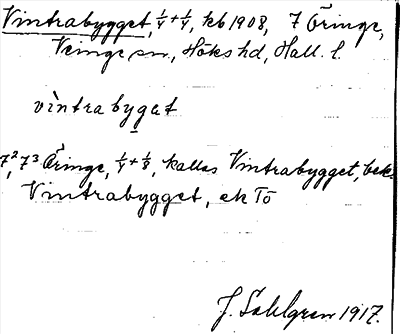 Vintrabygget, 1/4 + 1/4, kb 1908, 7 Öringe,
Veinge sn, Höks hd, Hall. l.
vìntrabygat
7², 7³ Öringe, 1/4 + 1/8, kallas Vintrabygget, bek.
Vintrabygget, ek Tö
J. Sahlgren 1917.